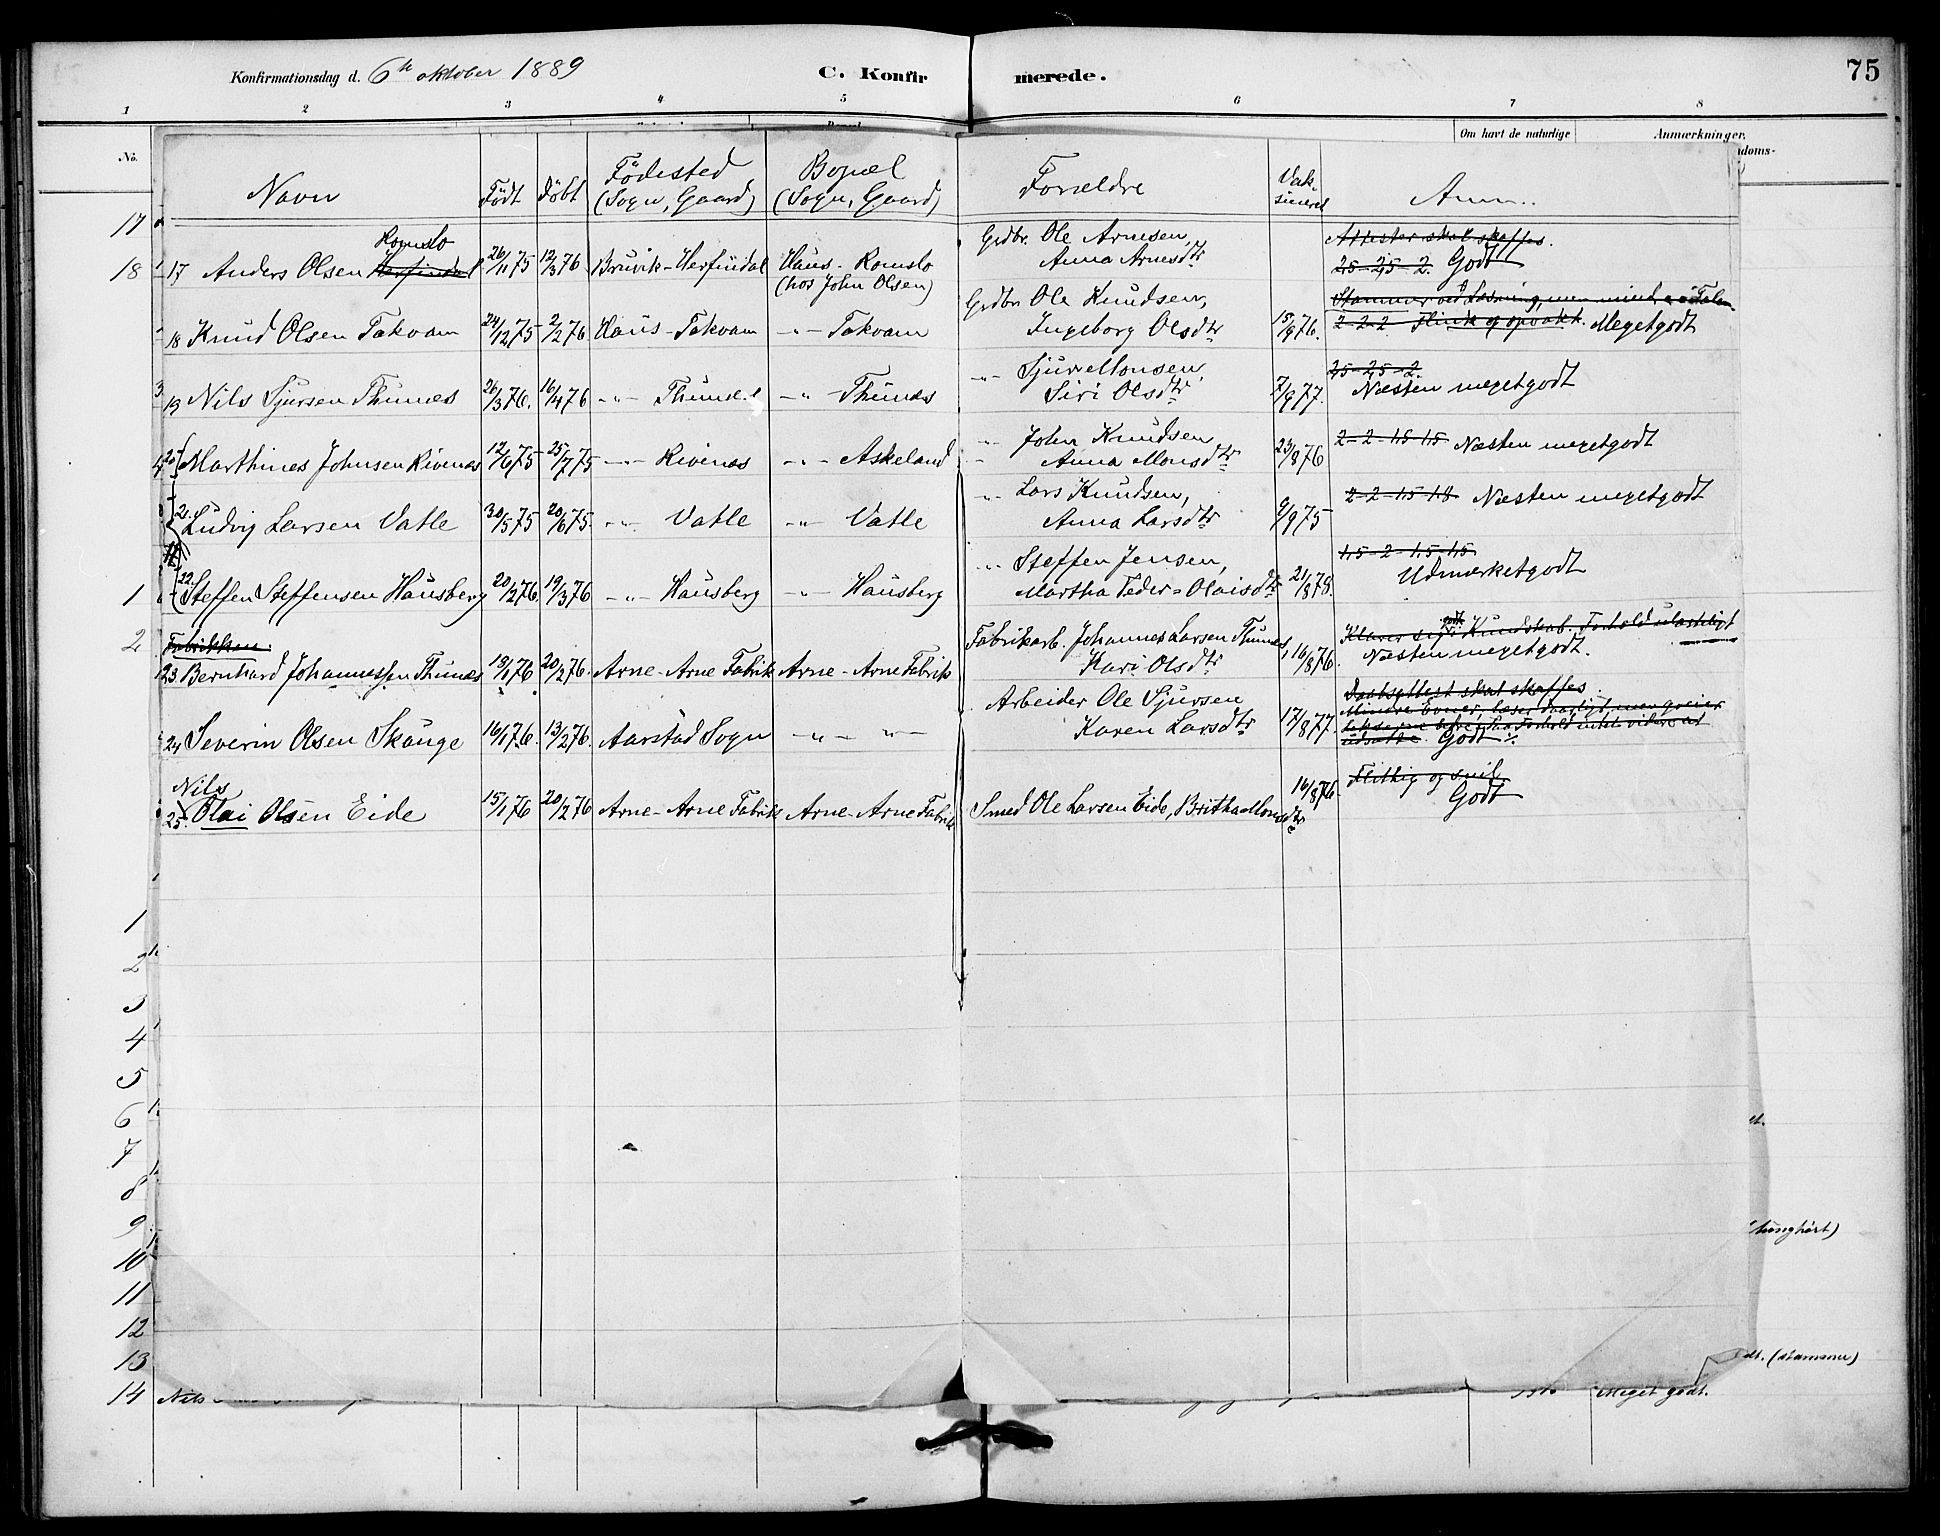 Konfirmationsdag d. 6te oktober 1889 C. Konfirmerede. 75
1 2 3 4 5 6 7 8
No. Om havt de naturlige Anmærkninger.
Navn Födt Döbt Födested (Sogn, Gaard) Bopæl (Sogn, Gaard) Forældre Vak-sineret Anm.
17
18
Romslo
17 Anders Olsen Herfindal 26/11 75 12/3 76 Bruvik - Herfindal Haus - Romslo (hos John Olsen) Grdbr. Ole Arnesen, Anna Arnesdtr Attester skal skaffes. 2,5 - 2,5 - 2. Godt
18 Knud Olsen Takvam 24/12 75 2/2 76 Haus - Takvam -"- Takvam Grdbr Ole Knudsen, Ingeborg Olsdtr 15/9 76. Stammer ved Læsning, men mindre i Talen 2-2-2 Flink og opvakt. Megetgodt
19 Nils Sjursen Thunes 26/3 76. 16/4 76 -"- Thunes -"- Thunes -"- Sjur Monsen, Siri Olsdtr 7/9 77. 2,5-2,5-2. Næsten megetgodt
20 Marthines Johnsen Rivenes 12/6 75 25/7 75 -"- Rivenes -"- Askeland -"- John Knudsen Anna Monsdtr 23/8 76 2-2-1,5-1,5 Næsten megetgodt
21. Ludvig Larsen Vatle 30/5 75 20/6 75. -"- Vatle -"- Vatle -"- Lars Knudsen, Anna Larsdtr 9/9 75 2-2-1,5-1,8 Næsten megetgodt
22. Steffen Steffensen Hausberg 20/2 76. 19/3 76 -"- Hausberg -"- Hausberg -"- Steffen Jensen, Martha Peder-Olaisdtr 21/8 78. 1,5-2-1,5-1,5 Udmærketgodt
1
2
Fabrikken.
23 Bernhard Johannessen Thunes 18/1 76 20/2 76. Arne - Arne Fabrik Arne - Arne Fabrik Fabrikarb. Johannes Larsen Thunes, Kari Olsdtr 16/8 76. Klarer sig godt i Kundskab. Forhold ulasteligt Næsten megetgodt.
24 Severin Olsen Skauge 16/1 76. 13/2 76. Aarstad Sogn -"- -"- Arbeider Ole Sjursen Karen Larsdtr 17/8 77. Daabsattest skal skaffes. Mindre Evner, læser daarligt, men greier udsatte. Godt
Nils
25. Olai Olsen Eide 15/1 76 20/2 76 Arne - Arne Fabrik Arne - Arne Fabrik Smed Ole Larsen Eide, Britha Monsdtr 16/8 76. Flittig og snil Godt
1
2
3
4
5
6
7
8
9 (tunghørt)
10
11
12
13 (stammer)
14 Nils Meget godt.